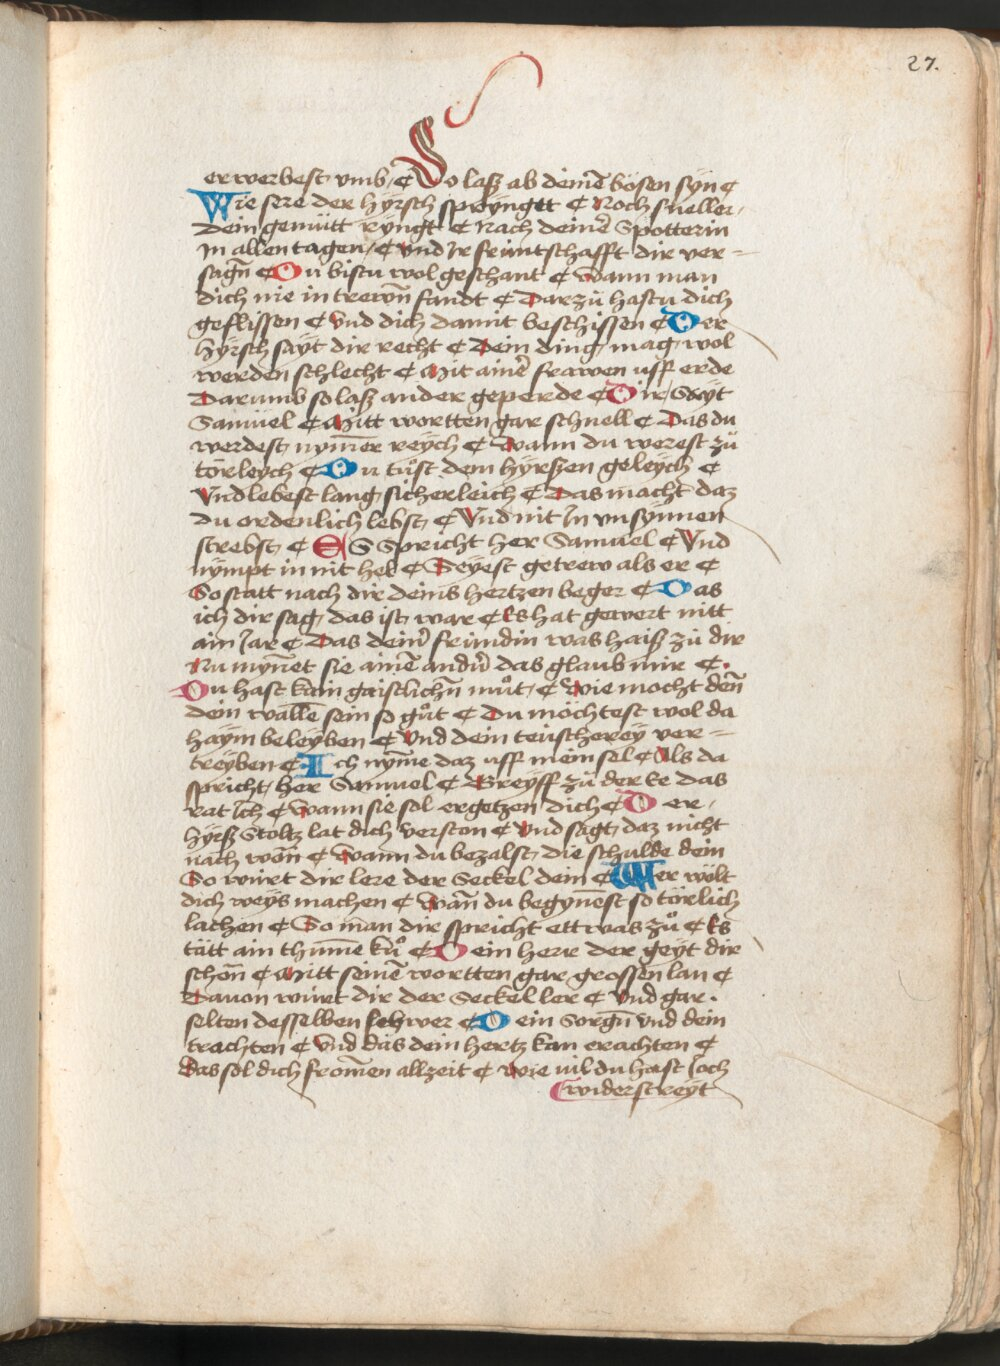 27.
erwerbest vmb ¢ So laß ab deinē bösen syn ¢
Wie sere der hyrsch spryngtt ¢ Noch sneller
dein gemütt ryngt ¢ Nach deinē Spotterin
In allen tagen ¢ vnd Ir früntschafft dir ver =
sagn̄ ¢ Du bistu wol geschant ¢ Wann man
dich nie in trewn̄ fandt ¢ Darzů hastu dich
geflissen ¢ Vnd dich damit beschissen ¢ Der
hyrsch sayt dir recht ¢ Dein ding mag wol
werden schlecht ¢ Mit ainē frawen uff erde
Darumb so laß ander geperde ¢ Dir Sayt
Samüel ¢ Mitt wortten gar schnell ¢ Das du
werdest nym̄er reych ¢ Wann du werest zů
torleych ¢ Du tůst dem hyrßen geleych ¢
Vnd lebest lang sicherleich ¢ Das macht daz
du ordenlich lebst ¢ Vnd nit In vnsynnen
strebst ¢ ES Spricht her Samuel ¢ Vnd
nympt in nit hel ¢ Seyest getrew als er ¢
So statt nach dir deins hertzen beger ¢ Das
ich dir sag das ist war ¢ Es hat gewert nitt
ain Jar ¢ Das dein fründin was haiß zů dir
Nu mynnet sie ainē andn̄ das glaub mir ¢
Du hast kain gaistlichn̄ můt ¢ Wie mocht den̄
dein wallē sein so gůt ¢ Du möchtest wol da
haym beleyben ¢ Vnd dein teüscherey ver =
treyben ¢ Ich nym̄e daz uff mein sel ¢ Als da
spricht her Samuel ¢ Greyff zů der Ee das
rat Ich ¢ Wann sie sol ergetzen dich ¢ Der
hyrß Stoltz lat dich verston ¢ Vnd sagt daz nicht
nach won ¢ Wann du bezalst die schulde dein
So würt dir lere der Seckel dein ¢ Wer wölt
dich weys machen ¢ Wan̄ du begyn̄est so törlich
lachen ¢ So man dir spricht ettwas zů ¢ Es
tätt ain thum̄e ků ¢ Dein herr der geyt dir
schon ¢ Mitt seinē wortten gar grossen lan ¢
Dauon würt dir der Seckel ler ¢ Vnd gar
selten desselben schwer ¢ Dein Sorgn̄ vnd dein
trachten ¢ Vnd das dein hertz kan erachten ¢
Das sol dich from̄en allzeit ¢ Wie uil du hast Joch
widerstreyt